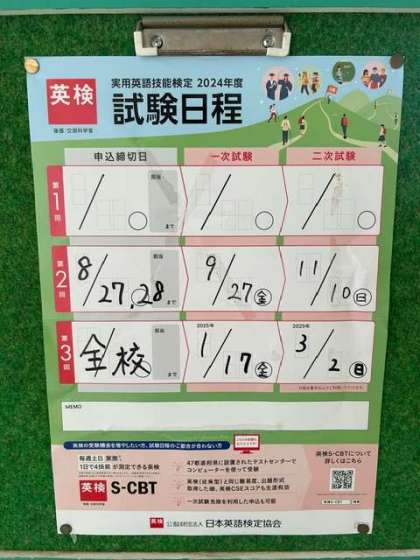 英検
後援/文部科学省
実用英語技能検定 2024年度
試験日程
申込締切日 一次試験 二次試験
第1回 / 担当 まで / /
第2回 8/27,28 担当 まで 9/27 金 11/10 日
第3回 全校 担当 まで 2025年 1/17 金 2025年 3/2 日
MEMO
英検の受験機会を増やしたい方、試験日程のご都合が合わない方
毎週土日 実施
1日で4技能が測定できる英検
英検 S-CBT
47都道府県に設置されたテストセンターで
コンピューターを使って受験
英検(従来型)と同じ難易度、出題形式
取得した級、英検CSEスコアも生涯有効
一次試験免除を利用した申込も可能
英検S-CBTについて
詳しくはこちら
英検 公益財団法人 日本英語検定協会